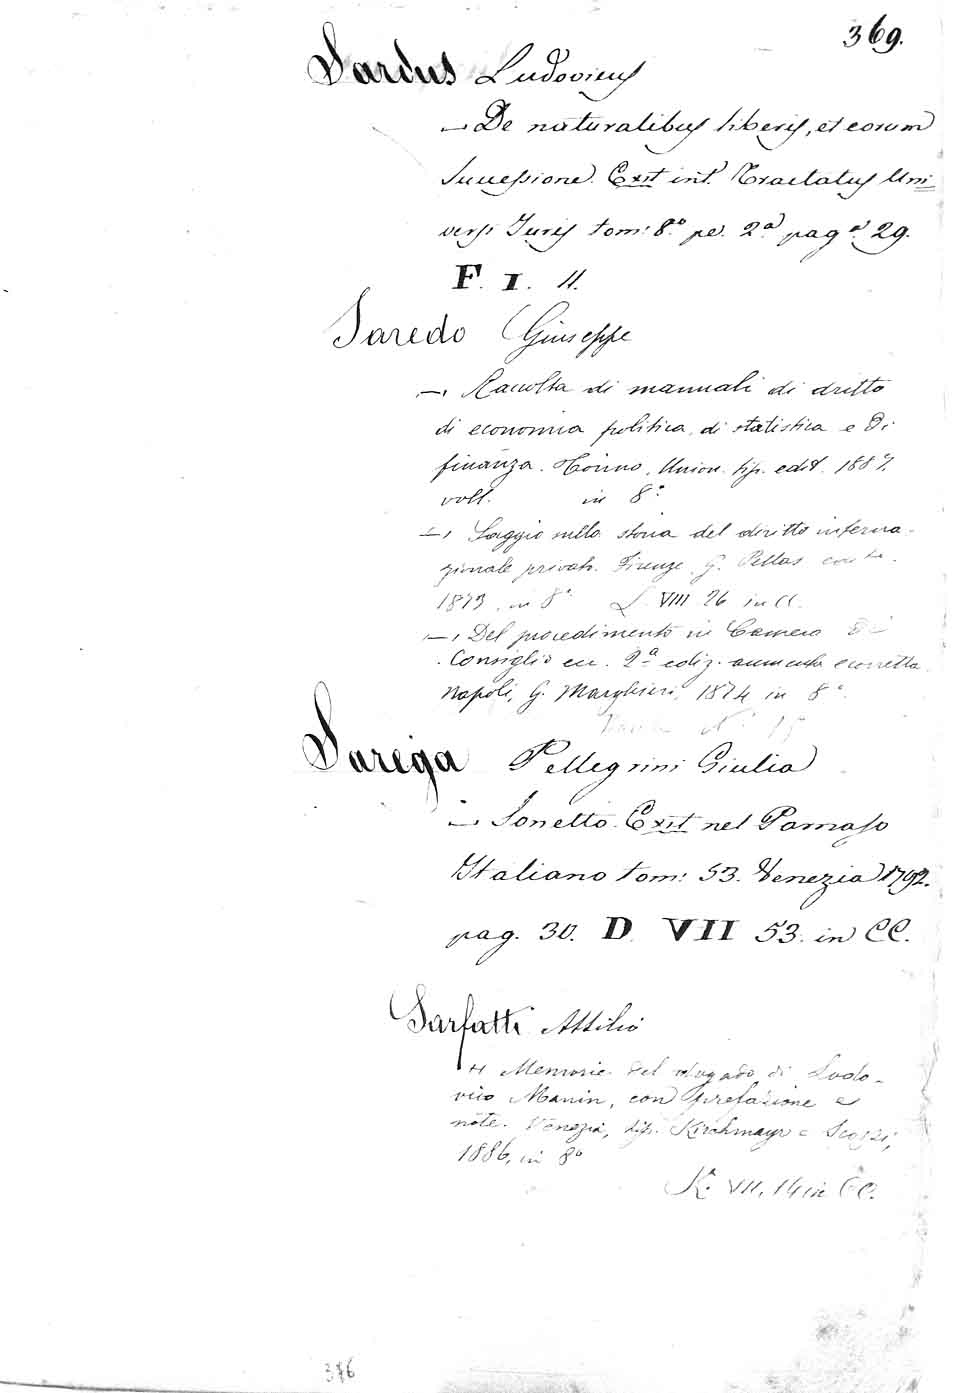 369.
Sardus Ludovicus
— De naturalibus liberis, et eorum
Successione. Exit int. Tractatus Uni=
versi Juris tom: 8.º 2.ª pag.ª 29.
F. I. 11.
Saredo Giuseppe
— Raccolta di manuali di dritto
di economia politica, di statistica e di
finanza. Torino, Union. tip. edit. 188
voll. in 8.º
— Saggio sulla storia del diritto interna-
zionale privato. Firenze, G. Pellas
1873, in 8º L. VIII 26 in CC.
— Del procedimento in Camera di
Consiglio ecc. 2ª ediz. aumentata e corretta.
Napoli, G. Marghieri, 1874 in 8º.
Sarega Pellegrini Giulia
— Sonetto. Exit nel Parnaso
Italiano tom: 53. Venezia 1792.
pag. 30. D VII 53. in CC.
Sarfatti Attilio
Memorie del dogado di Lodo-
vico Manin, con prefazione e
note. Venezia, tip. Kirchmayr e Scozzi,
1886, in 8º
K. VII. 14 in CC.
376